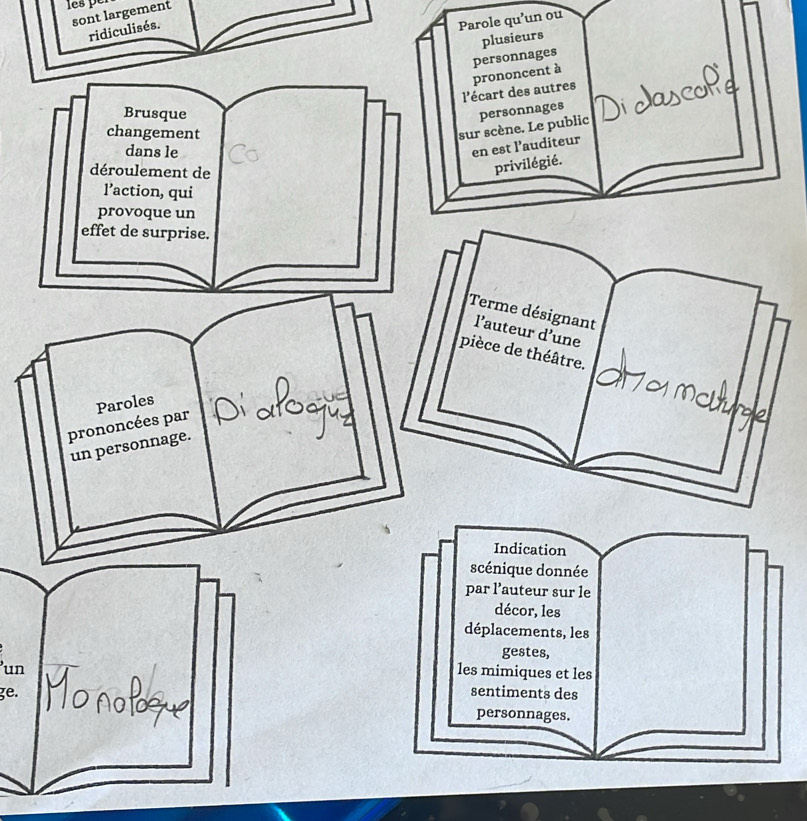 sont largement
ridiculisés.
Parole qu'un ou
plusieurs
personnages
prononcent à
l'écart des autres
personnages
sur scène. Le public
en est l'auditeur
privilégié.
Didascalie
Brusque
changement
dans le
déroulement de
l'action, qui
provoque un
effet de surprise.
Co
Terme désignant
l'auteur d'une
pièce de théâtre.
dramaturge
Paroles
prononcées par
un personnage.
Dialogue
Indication
scénique donnée
par l'auteur sur le
décor, les
déplacements, les
gestes,
les mimiques et les
sentiments des
personnages.
'un
ge.
Monologue